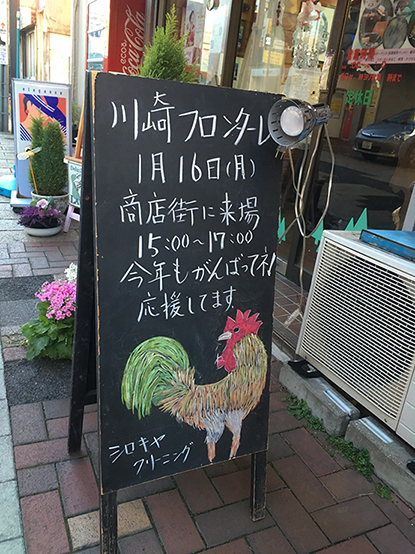 川崎フロンターレ
1月16日(月)
商店街に来場
15:00～17:00
今年もがんばってネ!
応援してます。
シロキヤ
クリーニング
Coca-Cola
elegance
定休日